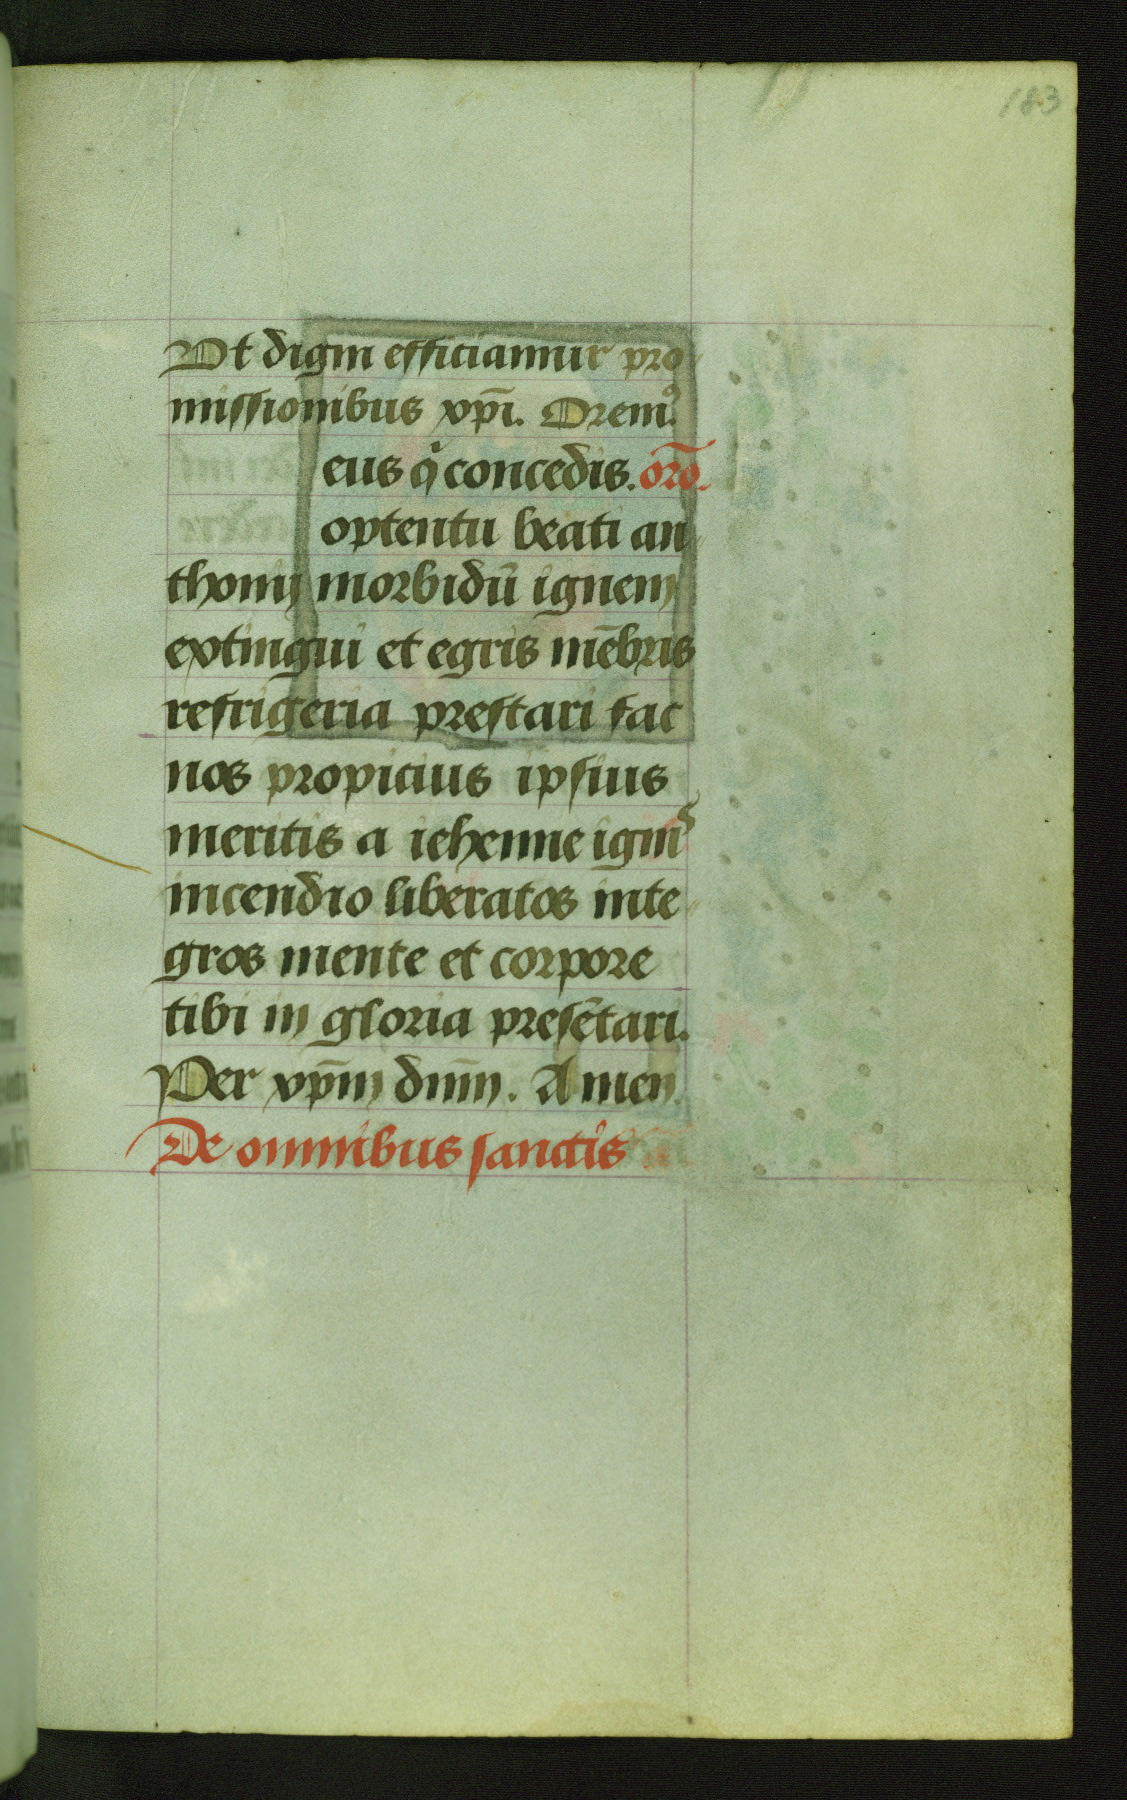 183
Ut digni efficiamur pro
missionibus xp̄i. Oremꝰ
eus qͥ concedis. or̄o.
optentu beati an
thonij morbidū ignem
extingui et egris mēbris
refrigeria prestari fac
nos propicius ipsius
meritis a iehenne ignis
incendio liberatos inte
gros mente et corpore
tibi in gloria presētari.
Per xp̄m dn̄m. Amen.
De omnibus sanctis